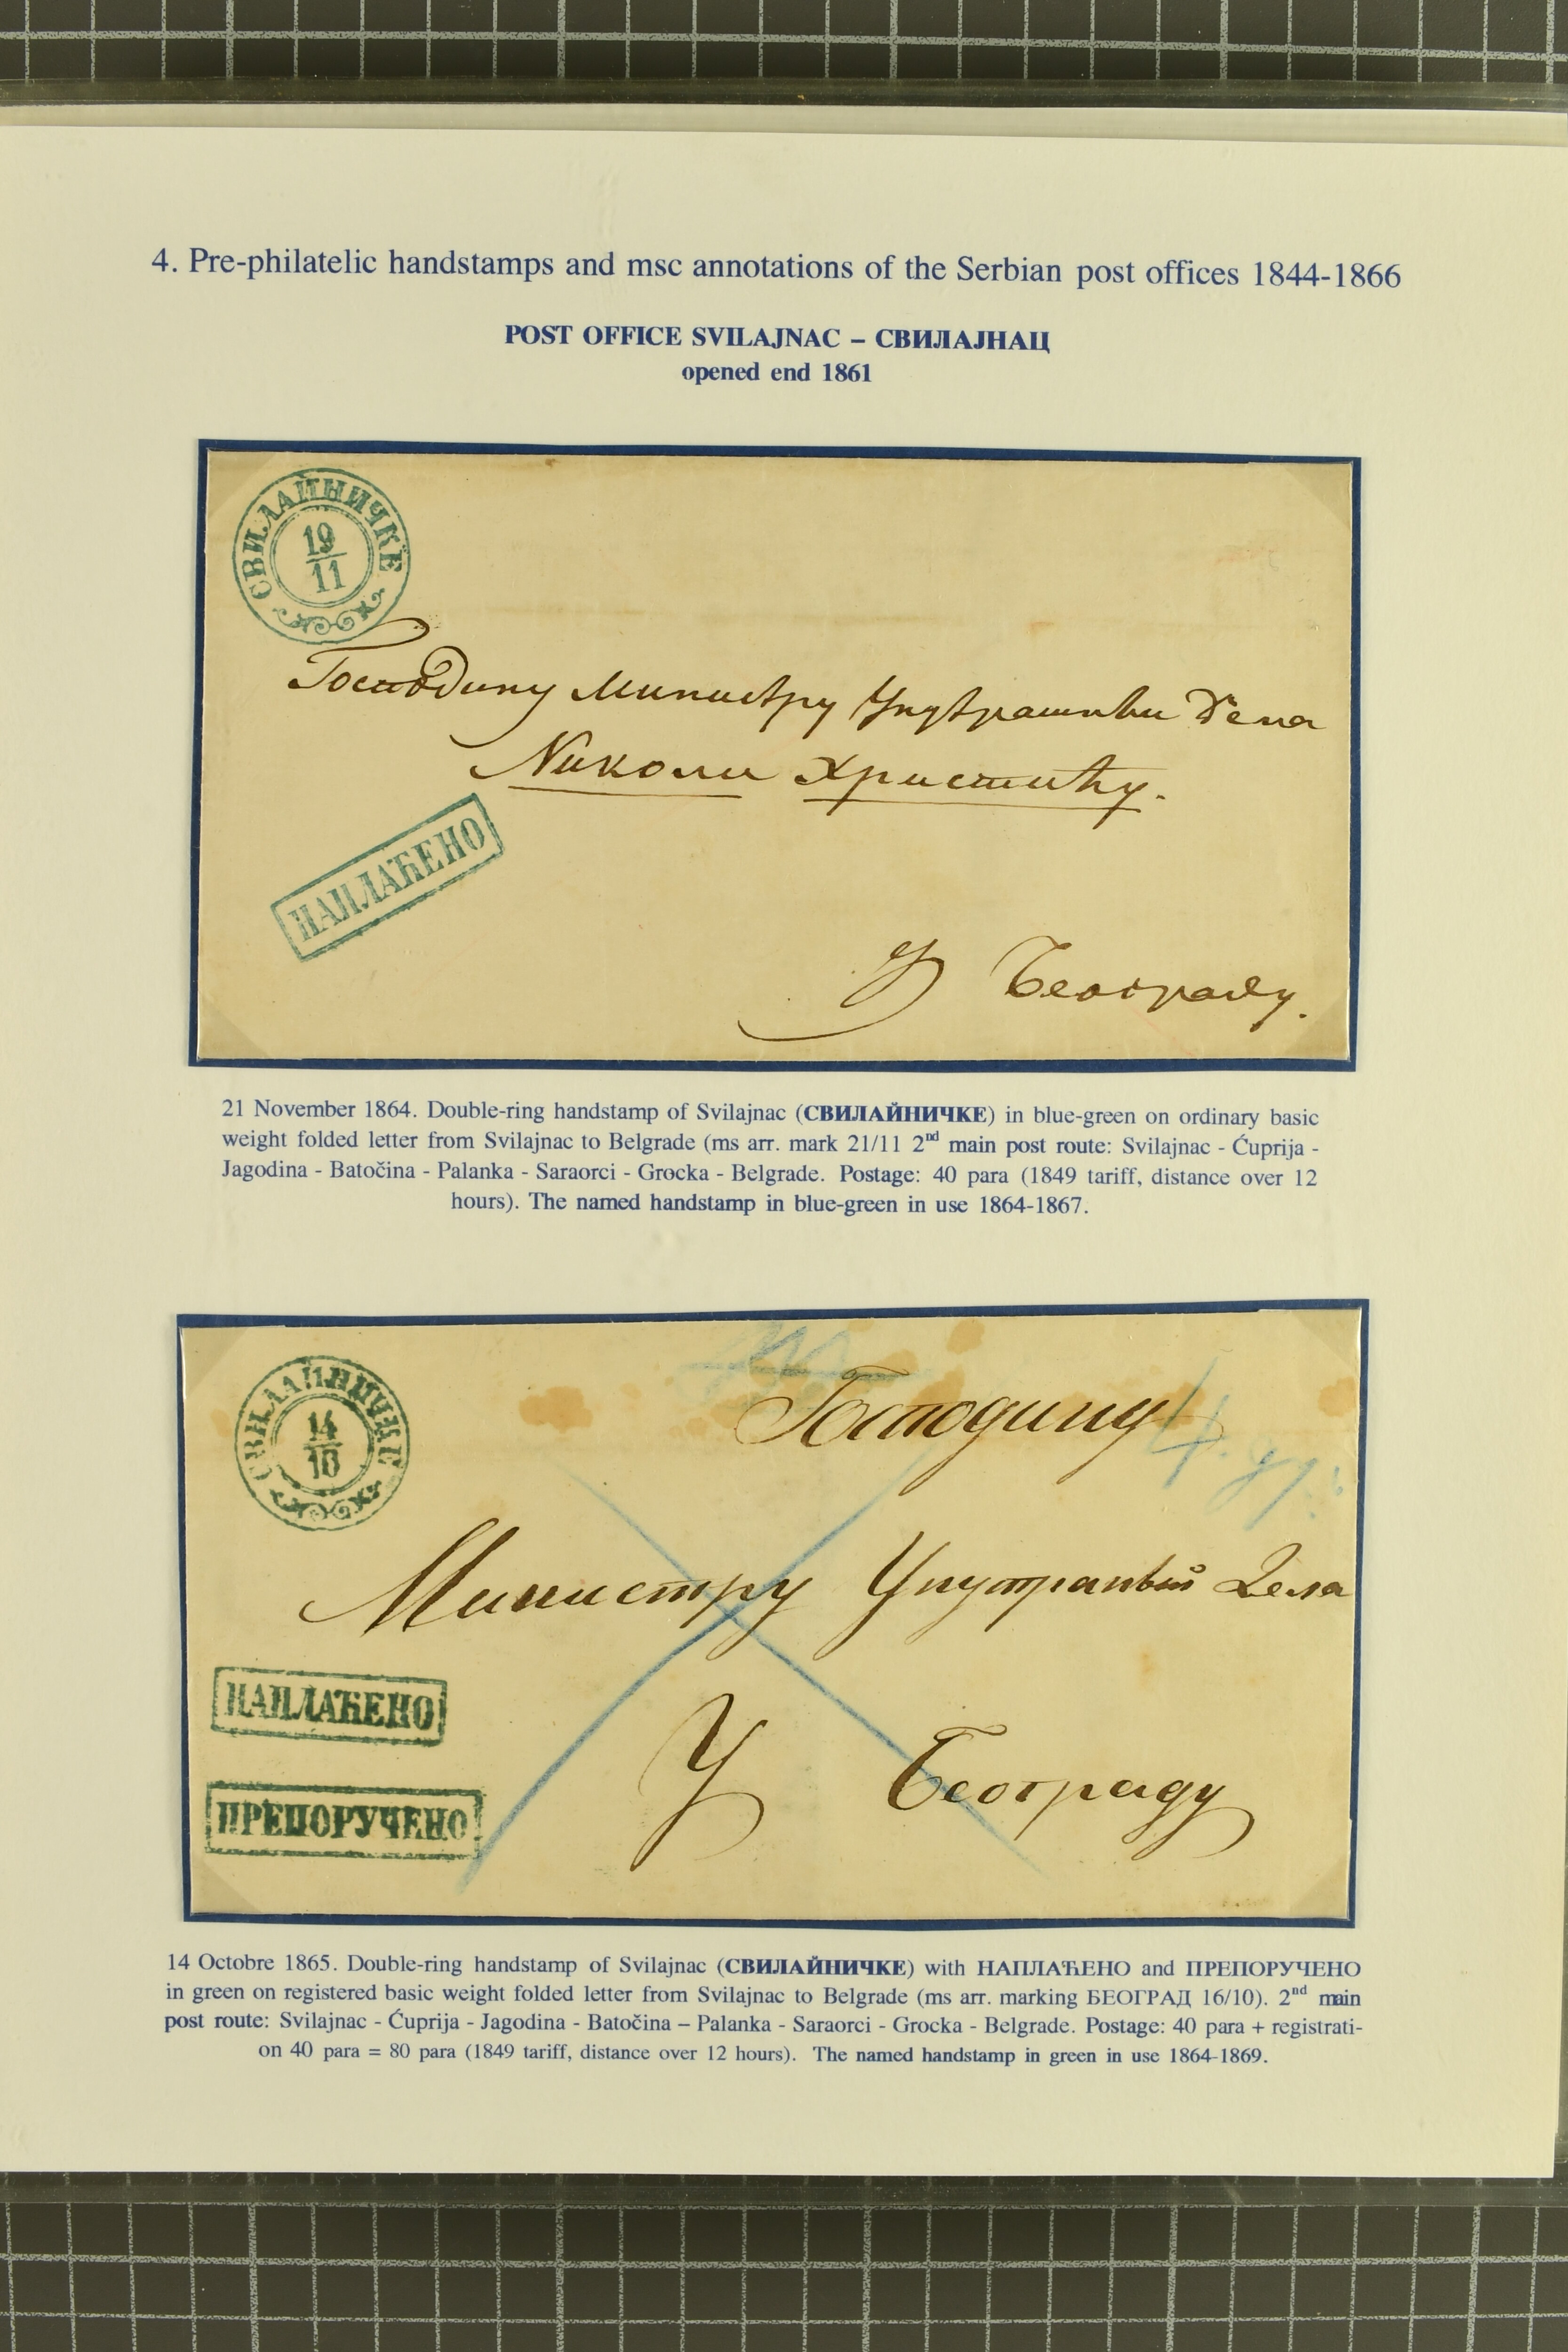 4. Pre-philatelic handstamps and msc annotations of the Serbian post offices 1844-1866
POST OFFICE SVILAJNAC – СВИЛАЈНАЦ
opened end 1861
СВИЛАЙНИЧКЕ
19
11
Господину Министру Унутрашњи Дела
Николи Христићу.
НАПЛАЋЕНО
У Београду.
21 November 1864. Double-ring handstamp of Svilajnac (СВИЛАЙНИЧКЕ) in blue-green on ordinary basic
weight folded letter from Svilajnac to Belgrade (ms arr. mark 21/11 2nd main post route: Svilajnac - Ćuprija -
Jagodina - Batočina - Palanka - Saraorci - Grocka - Belgrade. Postage: 40 para (1849 tariff, distance over 12
hours). The named handstamp in blue-green in use 1864-1867.
СВИЛАЙНИЧКЕ
14
10
Господину
Министру Унутрањий Дела
НАПЛАЋЕНО
У Београду
ПРЕПОРУЧЕНО
14 Octobre 1865. Double-ring handstamp of Svilajnac (СВИЛАЙНИЧКЕ) with НАПЛАЋЕНО and ПРЕПОРУЧЕНО
in green on registered basic weight folded letter from Svilajnac to Belgrade (ms arr. marking БЕОГРАД 16/10). 2nd main
post route: Svilajnac - Ćuprija - Jagodina - Batočina – Palanka - Saraorci - Grocka - Belgrade. Postage: 40 para + registrati-
on 40 para = 80 para (1849 tariff, distance over 12 hours). The named handstamp in green in use 1864-1869.